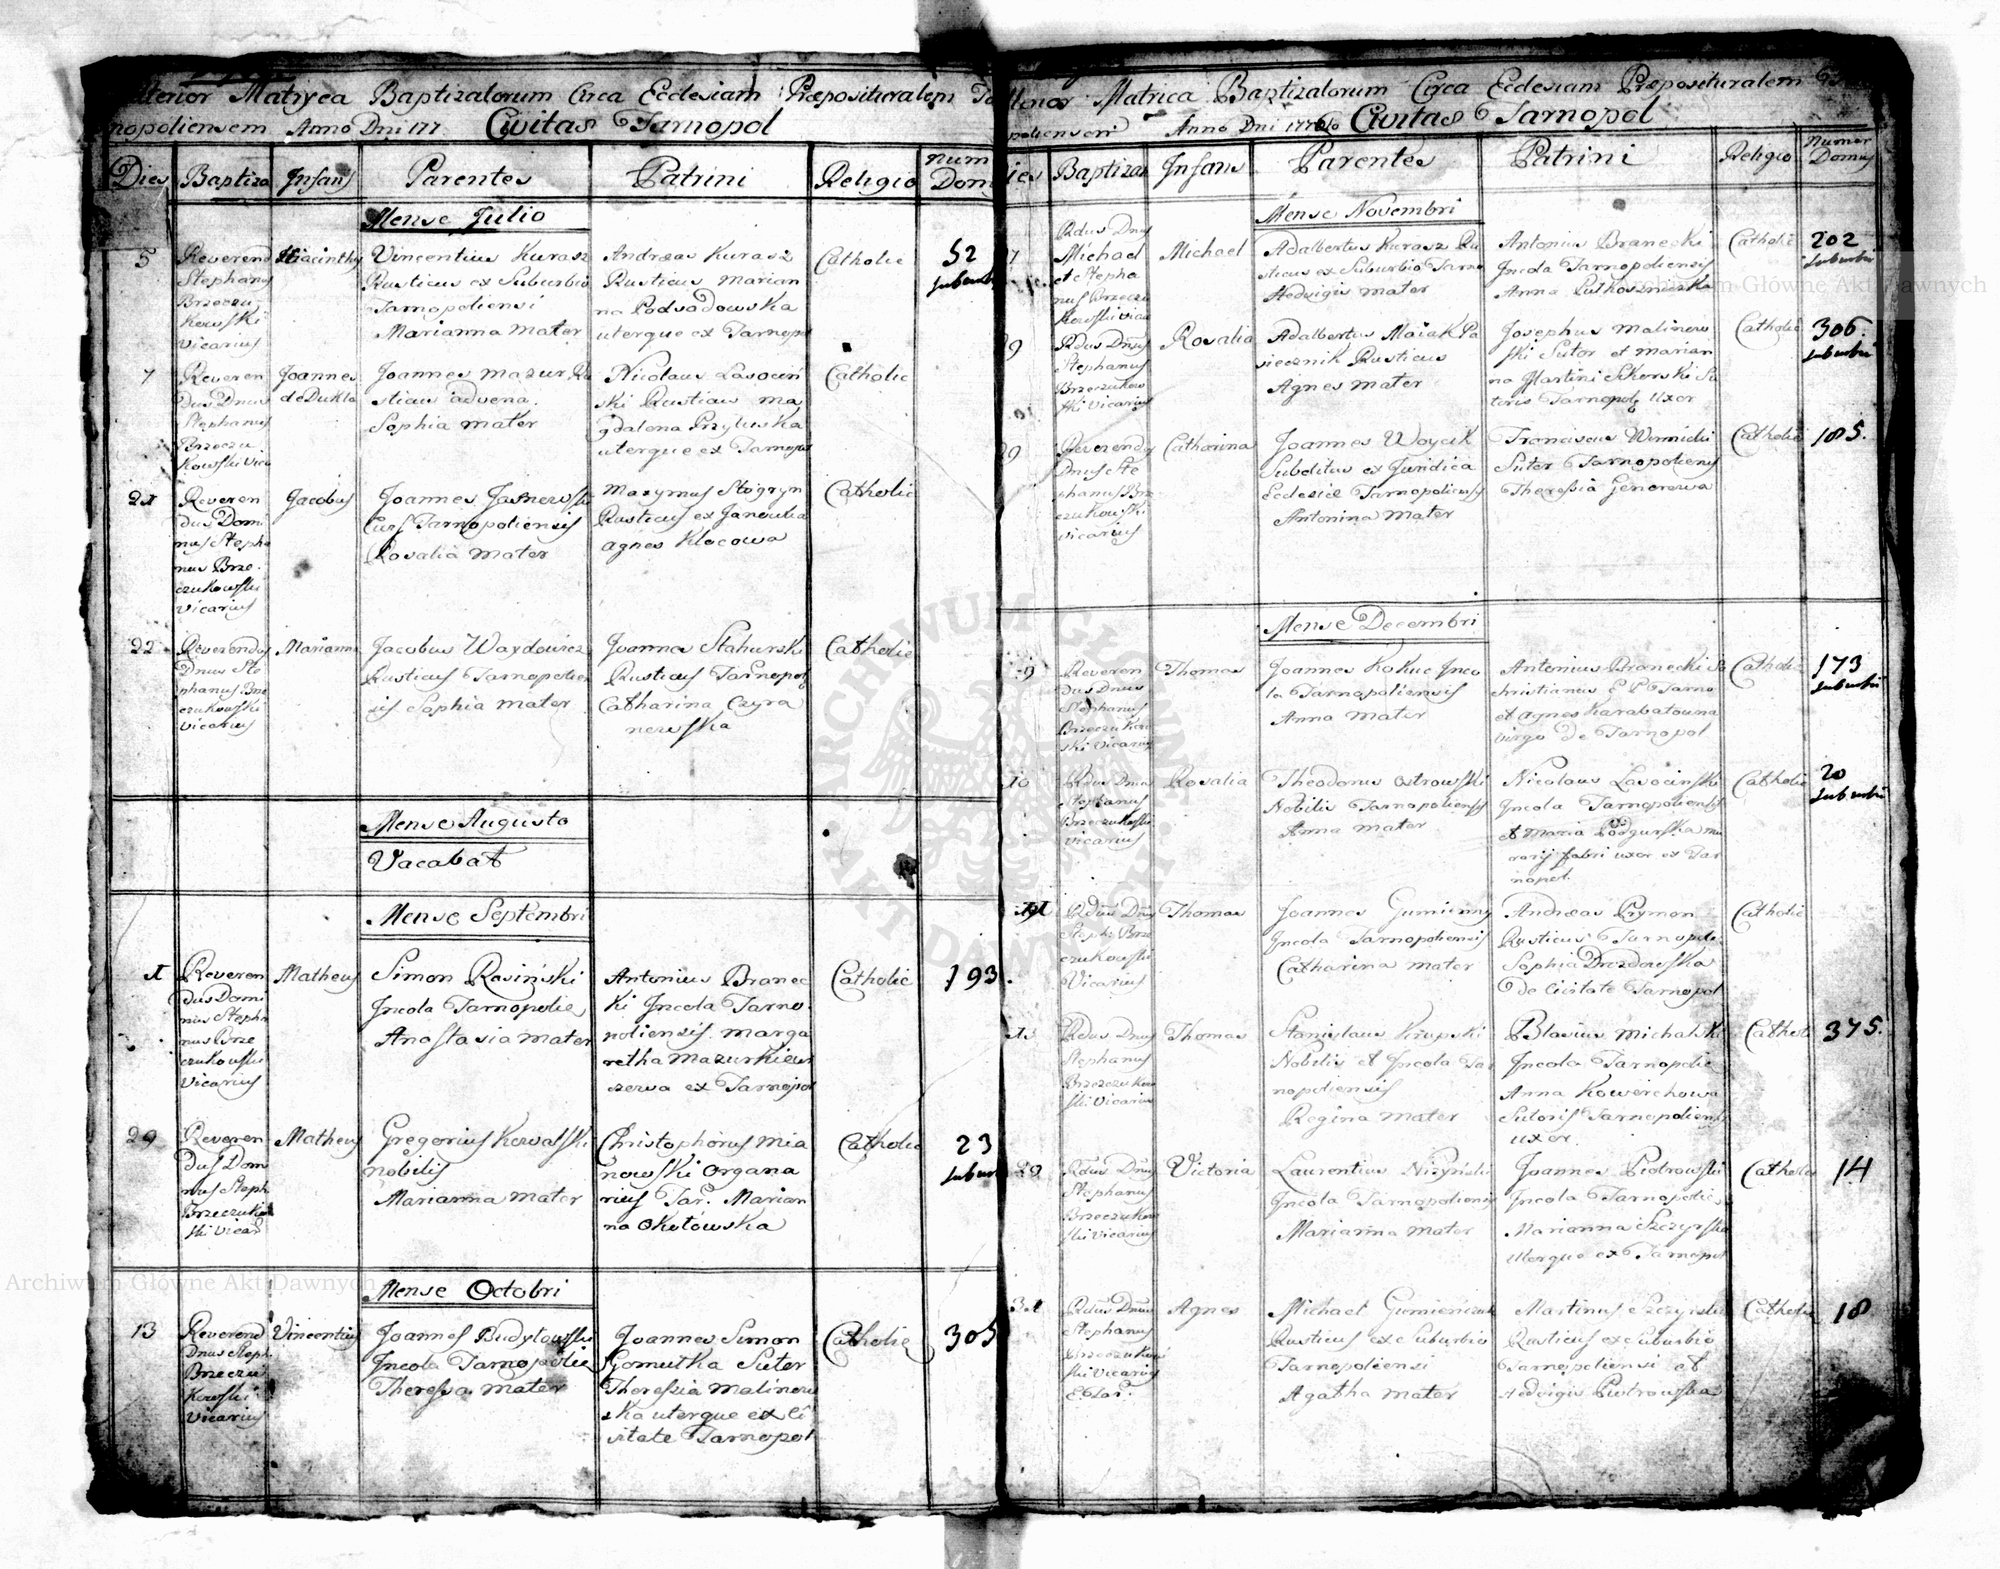 Matryca Baptizatorum Circa Ecclesiam Præposituralem
nopoliensem Anno Dni 177 Civitas Tarnopol
Dies Baptiza Infans Parentes Patrini Religio Num Dom
Mense Julio
5
Reverend
Stephanus
Brzeczu
kowski
Vicarius
Hiacinthus
Vincentius Kurasz
Rusticus ex Suburbio
Tarnopoliensi
Marianna Mater
Andreas Kurasz
Rusticus Marian
na Podsadowska
uterque ex Tarnopol
Catholic
52
Suburb
7
Reveren
dus Dnus
Stephanus
Brzeczu
kowski Vica
Joannes
de Dukla
Joannes Mazur Ru
sticus advena
Sophia Mater
Nicolaus Lasociń
ski Rusticus Ma
gdalena Przyluska
uterque ex Tarnopol
Catholic
21
Reveren
dus Domi
nus Stepha
nus Brze
czukowski
Vicarius
Jacobus
Joannes
Tarnopoliensis
Rosalia Mater
Maxymus Stogryn
Rusticus ex Janowka
Agnes Klocowa
Catholic
22
Reverendus
Dnus Ste
phanus Brze
czukowski
Vicarius
Marianna
Jacobus Waydowicz
Rusticus Tarnopolien
sis Sophia Mater
Joannes Stahurski
Rusticus Tarnopol
Catharina Czyra
newska
Catholic
Mense Augusto
Vacabat
Mense Septembri
1
Reveren
dus Domi
nus Stepha
nus Brze
czukowski
Vicarius
Matheus
Simon Rosiński
Incola Tarnopolien
Anastasia Mater
Antonius Branec
ki Incola Tarno
poliensis Marga
retha Mazurkiewi
czowa ex Tarnopol
Catholic
193.
29
Reveren
dus Dom
nus Steph
Brzeczuko
ski Vicar
Matheus
Gregorius Kowalski
nobilis
Marianna Mater
Christophorus Mia
nowski Organa
rius Tar. Marian
na Okołówska
Catholic
23
Suburb
Mense Octobri
13
Reverend
Dnus Steph
Brzeczu
kowski
Vicarius
Vincentius
Joannes Budyłowski
Incola Tarnopolien
Theressa Mater
Joannes Simon
Gomułka Sutor
Theressia Malinow
ska uterque ex Ci
vitate Tarnopol
Catholic
305
Matrica Baptizatorum Circa Ecclesiam Præposituralem
poliensem Anno Dni 1776 Civitas Tarnopol
Dies Baptizans Infans Parentes Patrini Religio Numer Domus
Mense Novembri
Rdus Dnus
Michael
et Stepha
nus Brzeczu
kowski Vica
Michael
Adalbertus Kurasz Ru
sticus ex Suburbio Tarno
Hedvigis Mater
Antonius Branecki
Incola Tarnopoliensis
Anna
Catholic
202
Suburbii
Rdus Dnus
Stephanus
Brzeczukow
ski Vicarius
Rosalia
Adalbertus Maiak Pa
siecznik Rusticus
Agnes Mater
Josephus Malinow
ski Sutor et Marian
na Martini Sikorski Su
toris Tarnopol Uxor
Catholic
306.
Suburbii
Reverendus
Dnus Ste
phanus Brz
czukowski
Vicarius
Catharina
Joannes Woycik
Subditus ex Juridica
Ecclesiæ Tarnopoliensis
Antonina Mater
Franciscus Wernicki
Sutor Tarnopoliensis
Theressia
Catholic
185.
Mense Decembri
Reveren
dus Dnus
Stephanus
Brzeczukow
ski Vicarius
Thomas
Joannes Kokuc Inco
la Tarnopoliensis
Anna Mater
Antonius Branecki
et Agnes Karabatowna
virgo de Tarnopol
Catholic
173
Suburbii
10
Rdus Dnus
Stephanus
Brzeczukowski
Vicarius
Rosalia
Theodorus Ostrowski
Nobilis Tarnopoliensis
Anna Mater
Nicolaus Lasocinski
Incola Tarnopoliensis
et Maria Podgurska mu
rarii fabri uxor ex Tar
nopol.
Catholic
20
Suburbii
Rdus Dnus
Steph: Brze
czukowski
Vicarius
Thomas
Joannes Gumienny
Incola Tarnopoliensis
Catharina Mater
Andreas Prymon
Rusticus Tarnopoli
Sophia Drozdowska
De Civitate Tarnopol
Catholic
13
Rdus Dnus
Stephanus
Brzeczukow
ski Vicarius
Thomas
Stanislaus Krupski
Nobilis et Incola Tar
nopoliensis
Regina Mater
Blasius Michalski
Incola Tarnopolien
Anna Kowerchowa
Sutoris Tarnopoliens
uxor.
Catholi
375.
20
Rdus Dnus
Stephanus
Brzeczukow
ski Vicarius
Victoria
Laurentius Niżyński
Incola Tarnopoliensis
Marianna Mater
Joannes Piotrowski
Incola Tarnopolien
Marianna Szczyrska
uterque ex Tarnopol
Catholic
14
31
Rdus Dnus
Stephanus
Brzeczukow
ski Vicarius
E. Tar.
Agnes
Michael Gumieńczuk
Rusticus ex Suburbio
Tarnopoliensi
Agatha Mater
Martinus Szczyrski
Rusticus ex Suburbio
Tarnopoliensi et
Hedvigis Piotrowska
Catholic
18
ARCHIWUM GŁÓWNE AKT DAWNYCH
Archiwum Główne Akt Dawnych
Archiwum Główne Akt Dawnych